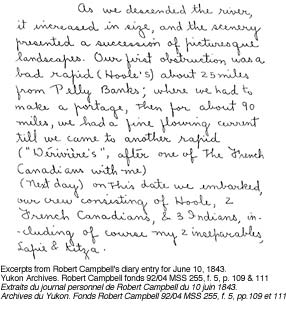 As we descended the river,
it increased in size, and the scenery
presented a succession of picturesque
landscapes. Our first obstruction was a
bad rapid (Hoole's) about 25 miles
from Pelly Banks; where we had to
make a portage, then for about 90
miles, we had a fine flowing current
till we came to another rapid
("Dérivière's", after one of the French
Canadians with me)
(Next day) on this date we embarked,
our crew consisting of Hoole, 2
French Canadians, & 3 Indians, in-
cluding of course my 2 inseparables,
Lapie & Kitza.
Excerpts from Robert Campbell's diary entry for June 10, 1843.
Yukon Archives. Robert Campbell fonds 92/04 MSS 255, f. 5, p. 109 & 111
Extraits du journal personnel de Robert Campbell du 10 juin 1843.
Archives du Yukon. Fonds Robert Campbell 92/04 MSS 255, f. 5, pp.109 et 111